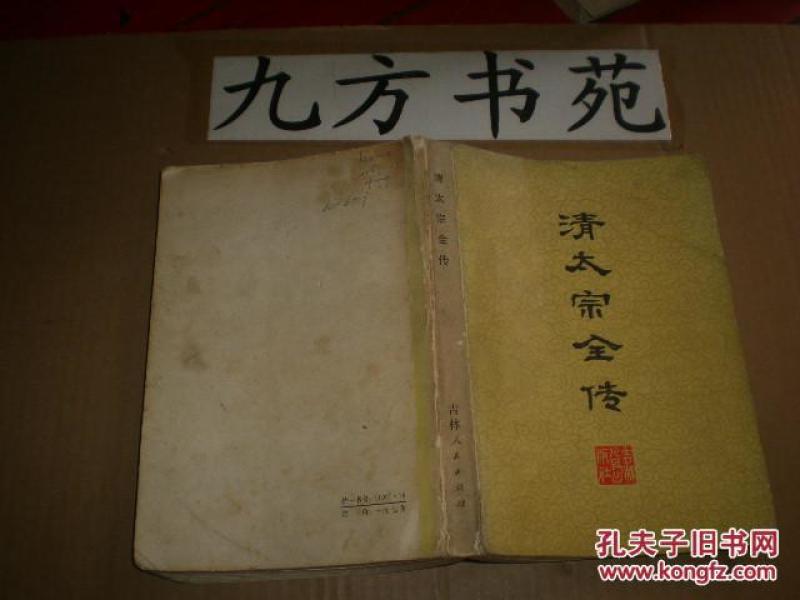 九方书苑
清太宗全传
清太宗全传
吉林人民出版社
孔夫子旧书网
www.kongfz.com